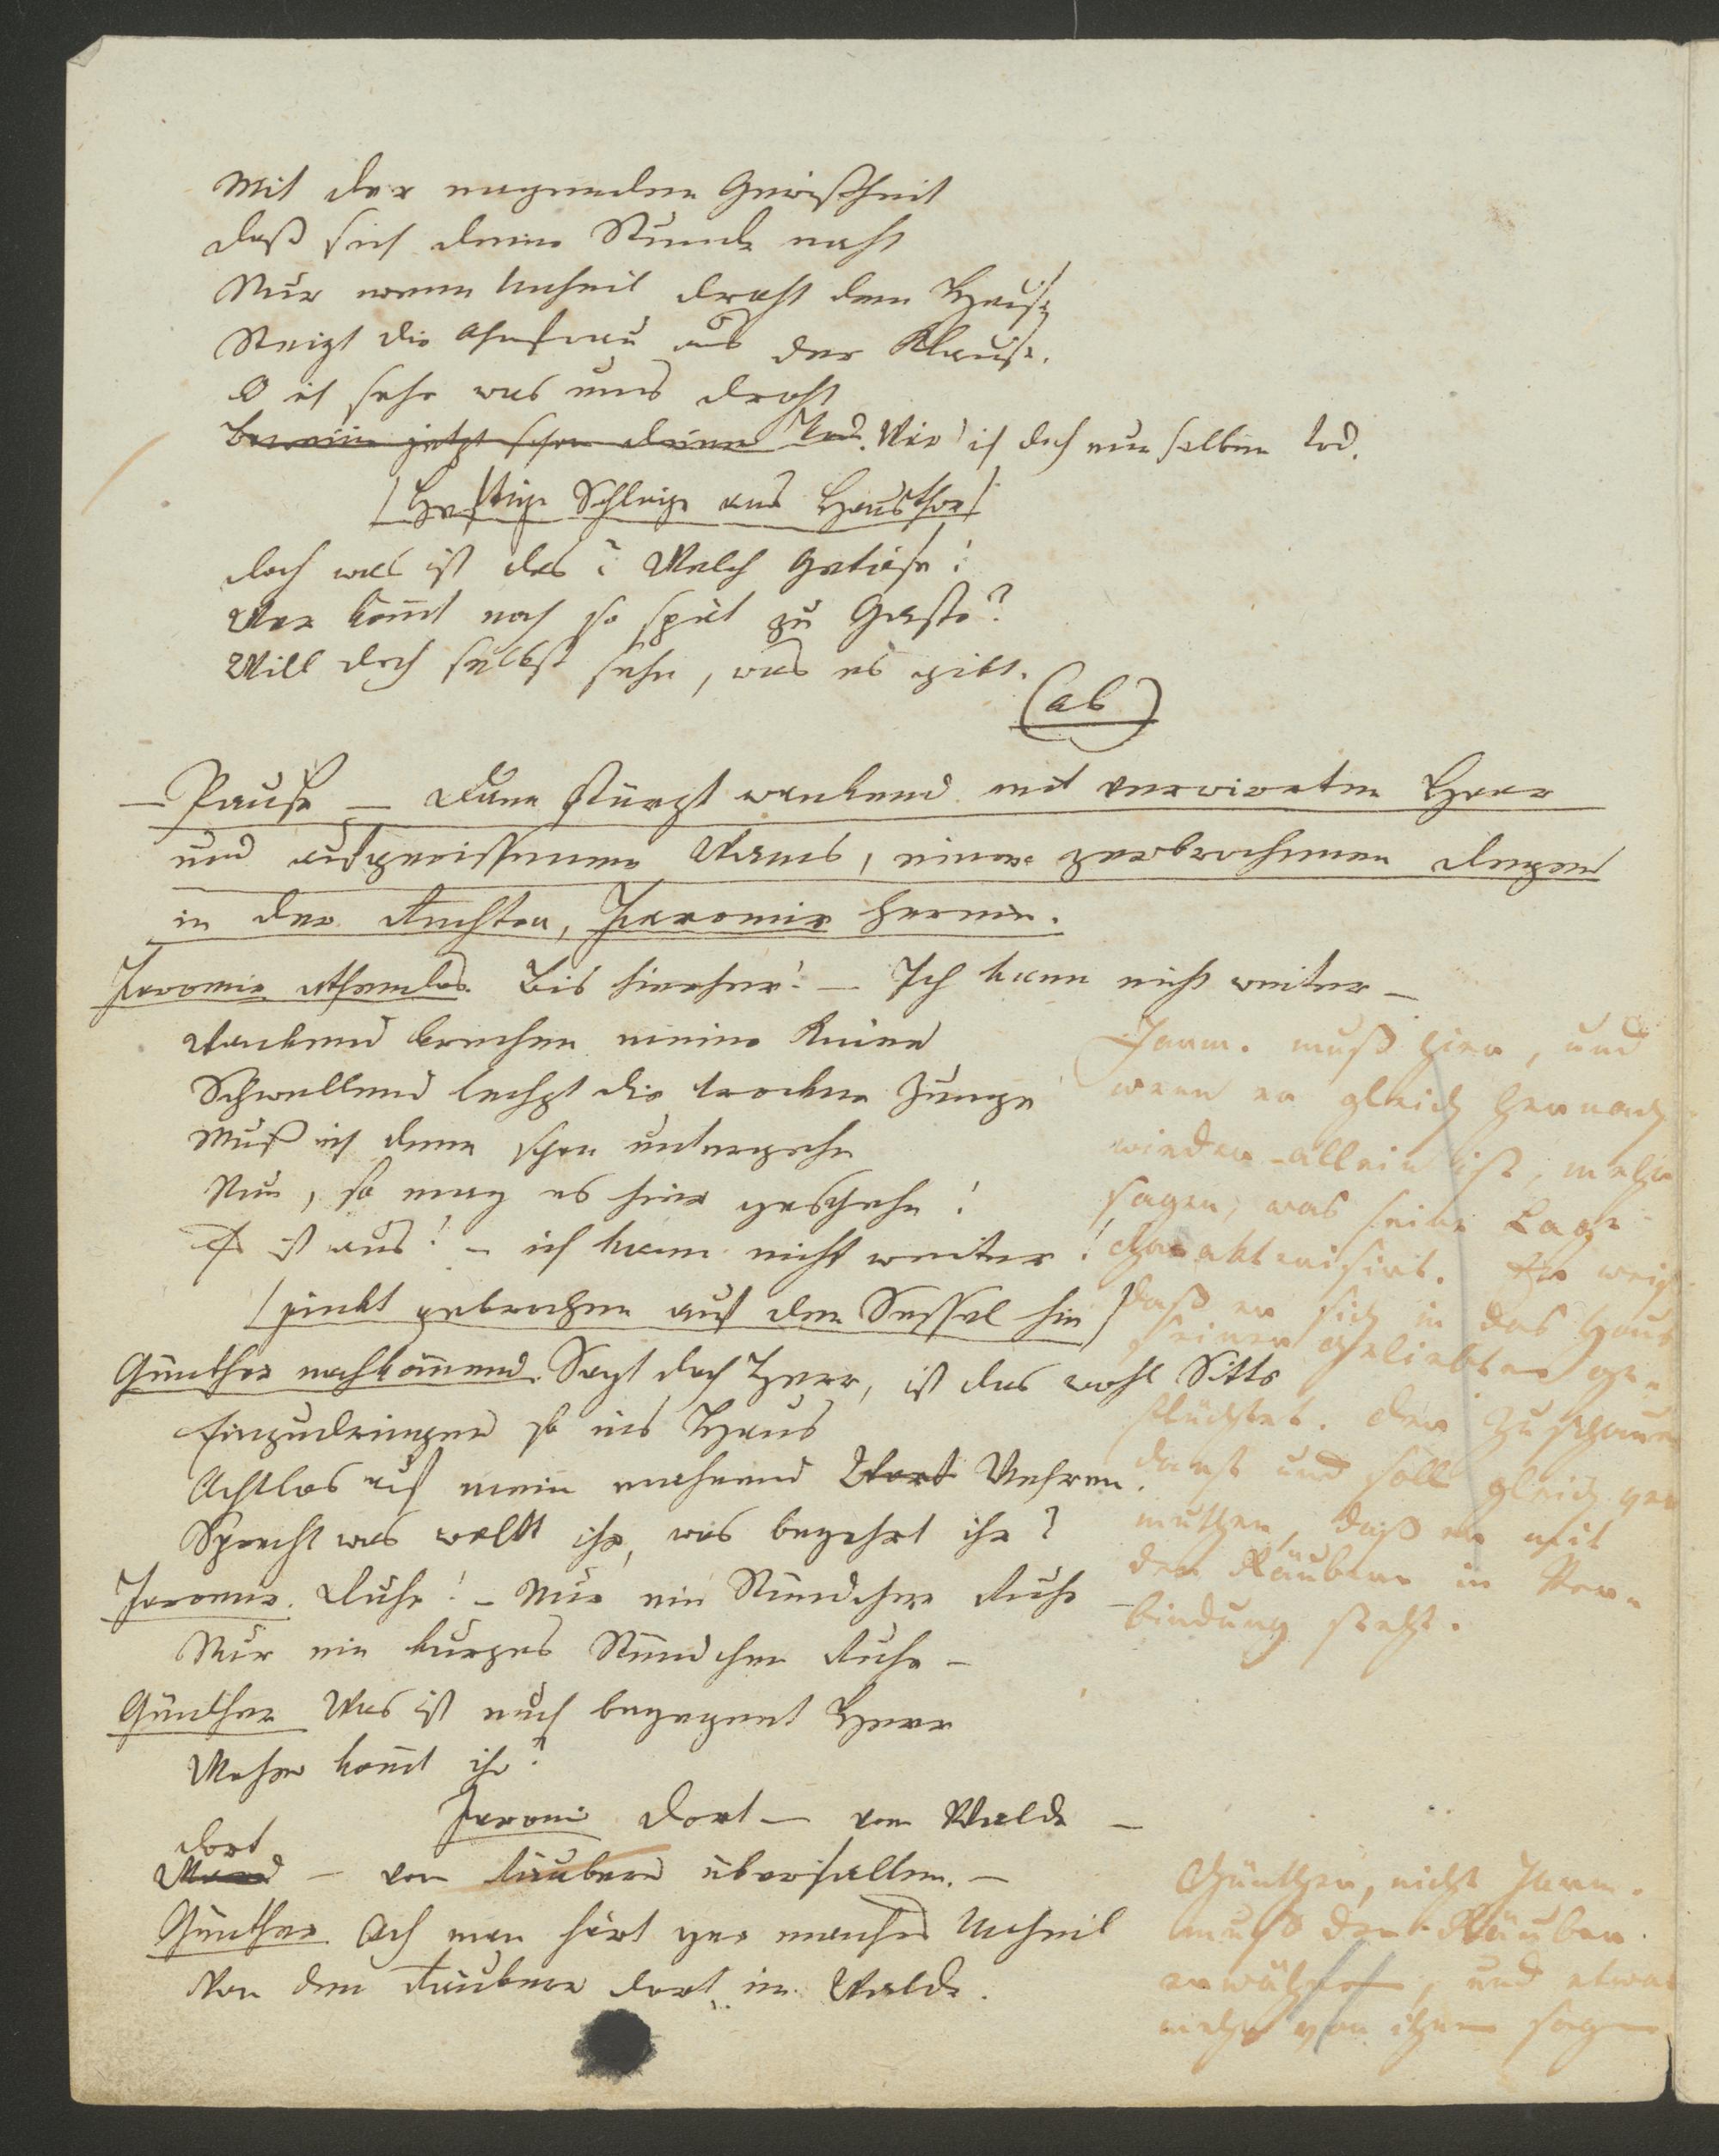 Mit der nagenden Gewißheit
daß sich deine Stunde naht
Nur wenn Unheil droht dem Hause
Steigt die Ahnfrau aus der Klause.
O ich sehe was uns droht
Beweine jetzt schon deinen Tod. Wär' ich doch nur selber tod.
(Heftige Schläge ans Hausthor)
doch was ist das? Welch Getöse!
Wer kom̄t noch so spät zu Gaste?
Will doch selbst sehn, was es gibt.
(ab)
— Pause — Dann stürzt wankend mit verwirrten Haar
und aufgerissenem Wams, einen zerbrochenen Degen
in der Rechten, Jaromir herein.
Jaromir athemlos. Bis hierher! — Ich kann nicht weiter —
Wankend brechen meine Kniee
Schwellend lechzt die trockne Zunge
Muß ich denn schon untergehn
Nun, so mag es hier geschehn!
Es ist aus! – ich kann nicht weiter!
(sinkt gebrochen auf den Sessel hin)
Günther nachkom̄end. Sagt doch Herr, ist das wohl Sitte
Einzudringen so ins Haus
Achtlos auf mein mahnend Wort Wehren.
Sprecht was wollt ihr, was begehrt ihr?
Jaromir. Ruhe! – Nur ein Stündchen Ruhe
Nur ein kurzes Stündchen Ruhe –
Günther Was ist euch begegnet Herr
Woher kom̄t ihr?
Jaromir Dort — vom Walde —
dort
— von Räubern überfallen. —
Günther Ach man hört gar manches Unheil
Von den Räubern dort im Walde.
Jarom. muß hier, und
wenn er gleich hernach
wieder allein ist, mehr
sagen, was seine Lage
charakterisirt. Er weiß
daß er sich in das Haus
seiner Geliebten ge-
flüchtet. Der Zuschauer
darf und soll gleich ver
muthen, daß er mit
den Räubern in Ver-
bindung steht.
Günther, nicht Jarom.
muß der Räuber
erwähnen, und etwas
mehr von ihnen sagen